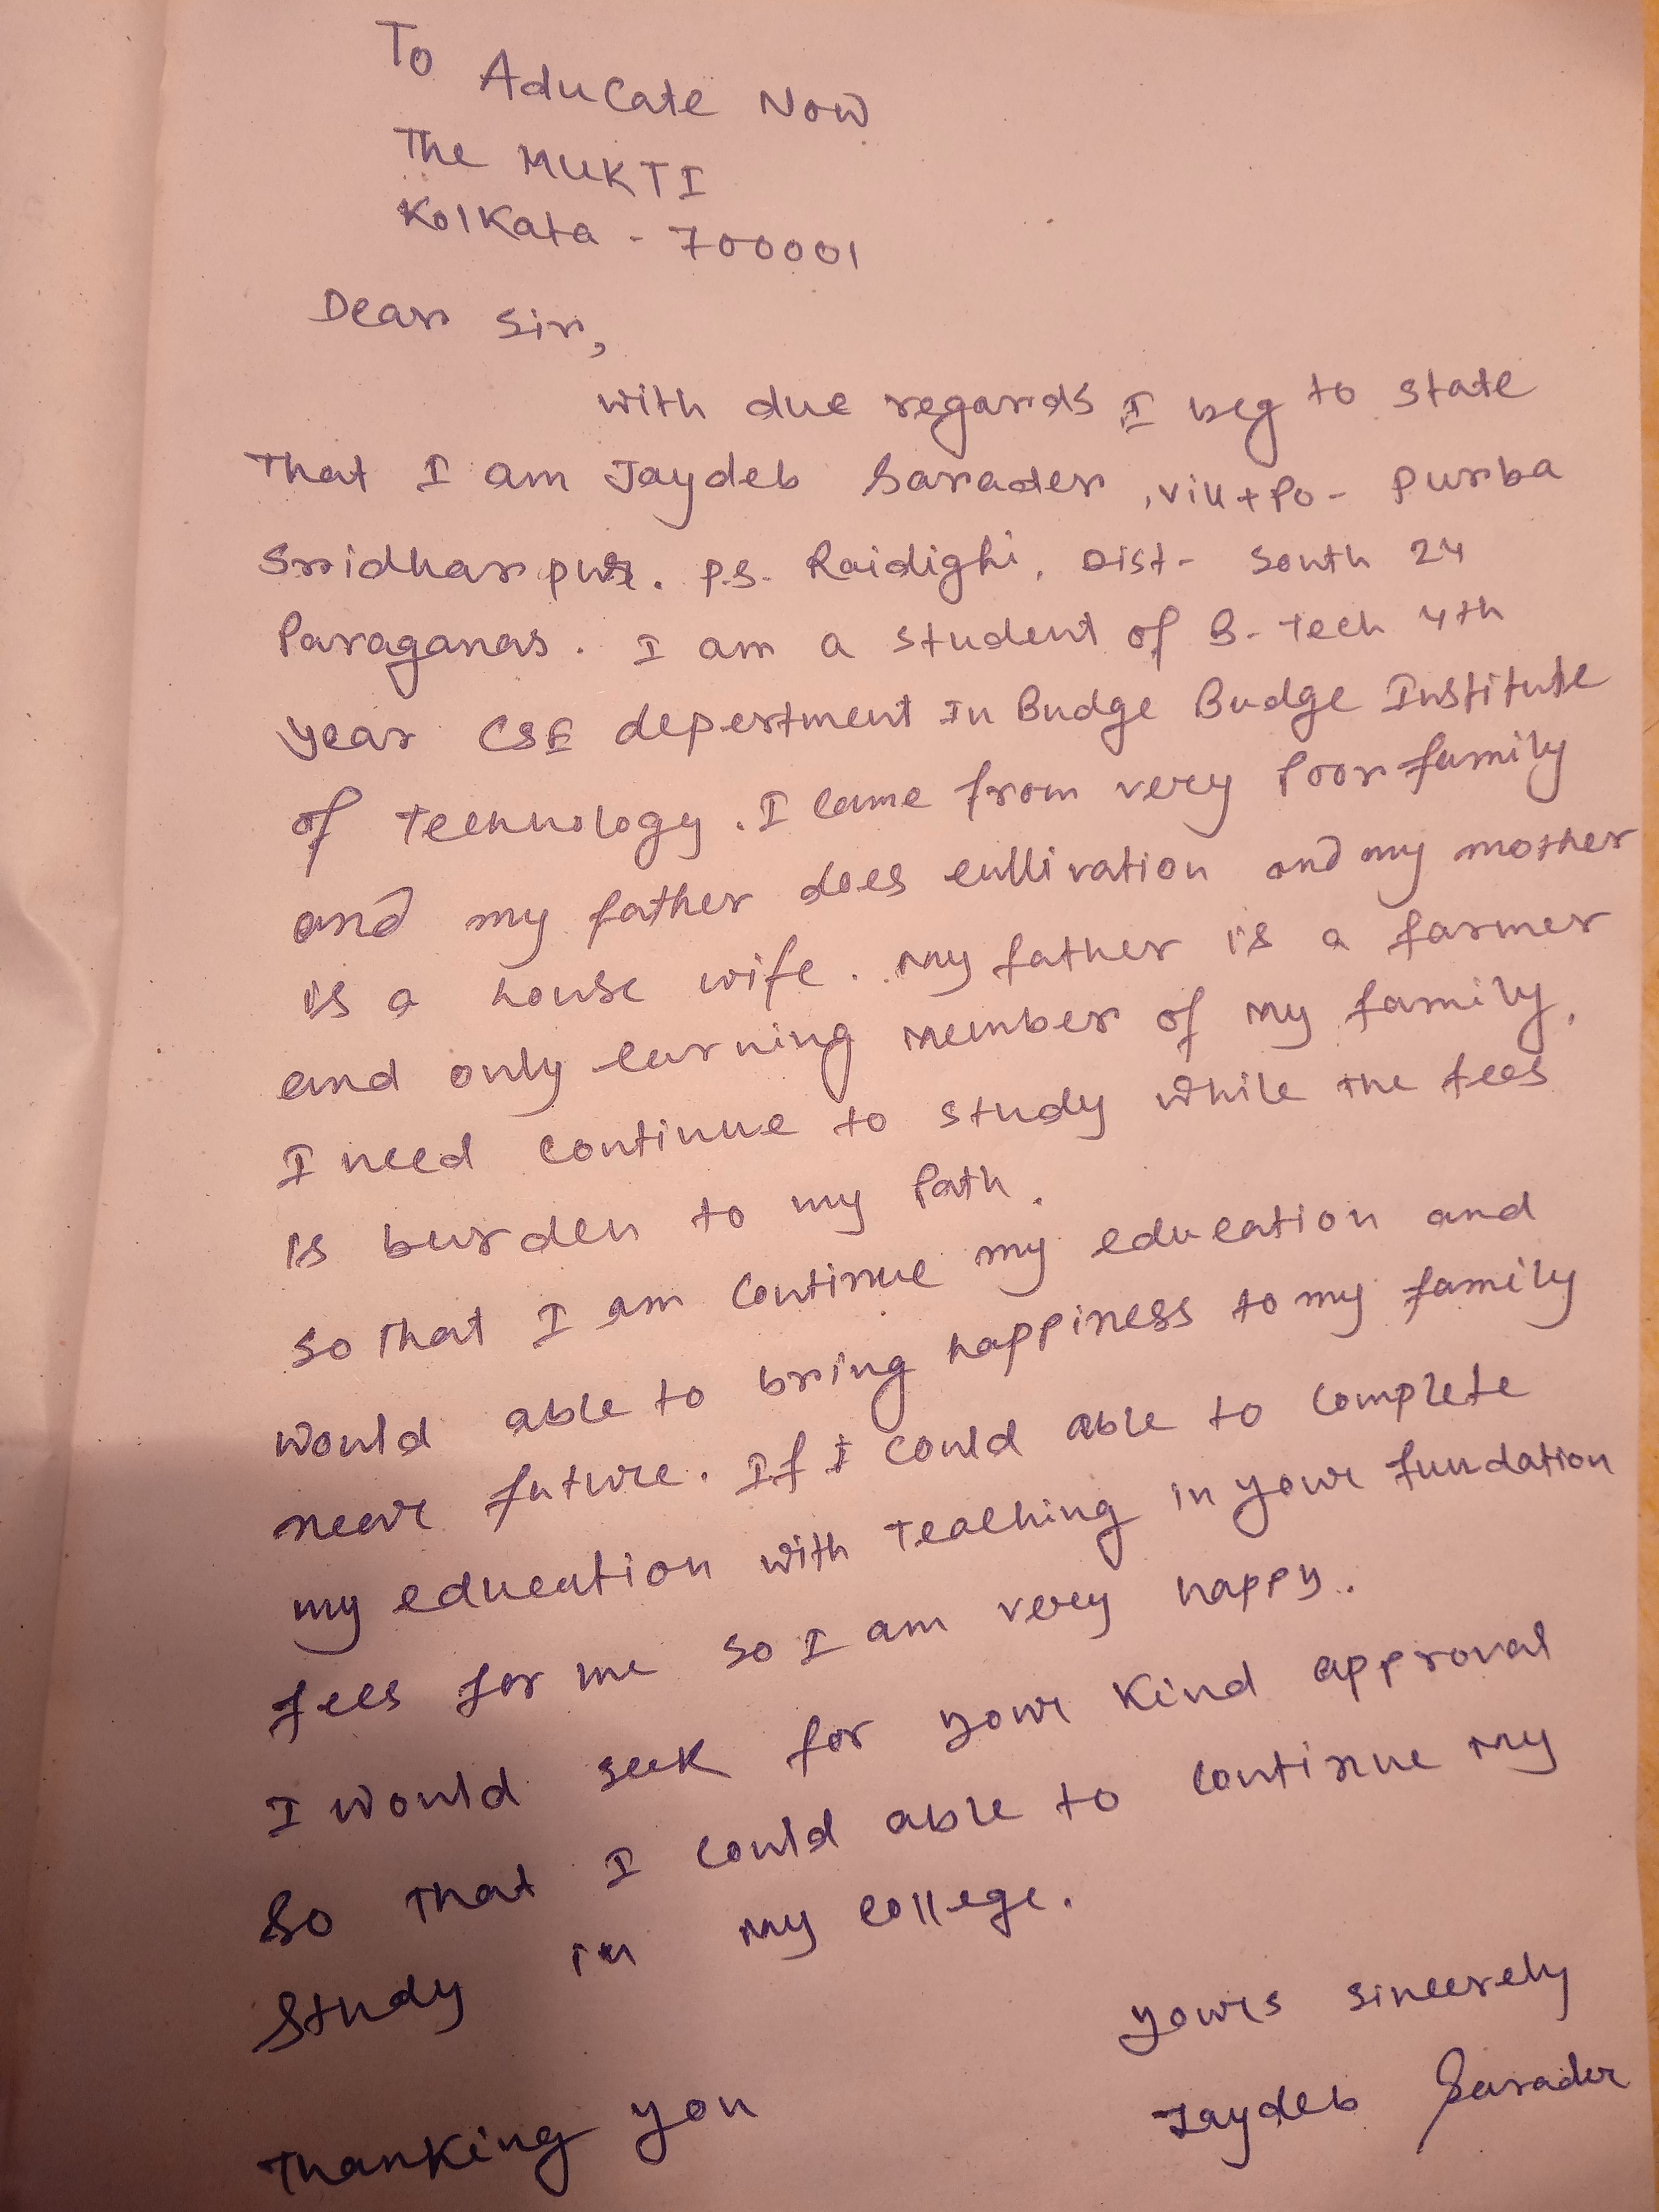 To Aducate Now
The MUKTI
Kolkata - 700001
Dear Sir,
with due regards I beg to state
That I am Jaydeb Sarader, vill+Po- Purba
Sridharpur. P.S. Raidighi, Dist- South 24
Paraganas. I am a student of B-Tech 4th
year CSE depertment In Budge Budge Institute
of Technology. I came from very Poor family
and my father does cultivation and my mother
is a house wife. My father is a farmer
and only earning member of my family.
I need continue to study while the fees
is burden to my Path.
So that I am Continue my education and
would able to bring happiness to my family
near future. If I could able to complete
my education with teaching in your fundation
fees for me so I am very happy.
I would seek for your kind approval
So that I could able to continue my
Study in my college.
yours sincerely
Thanking you
Jaydeb Sarader